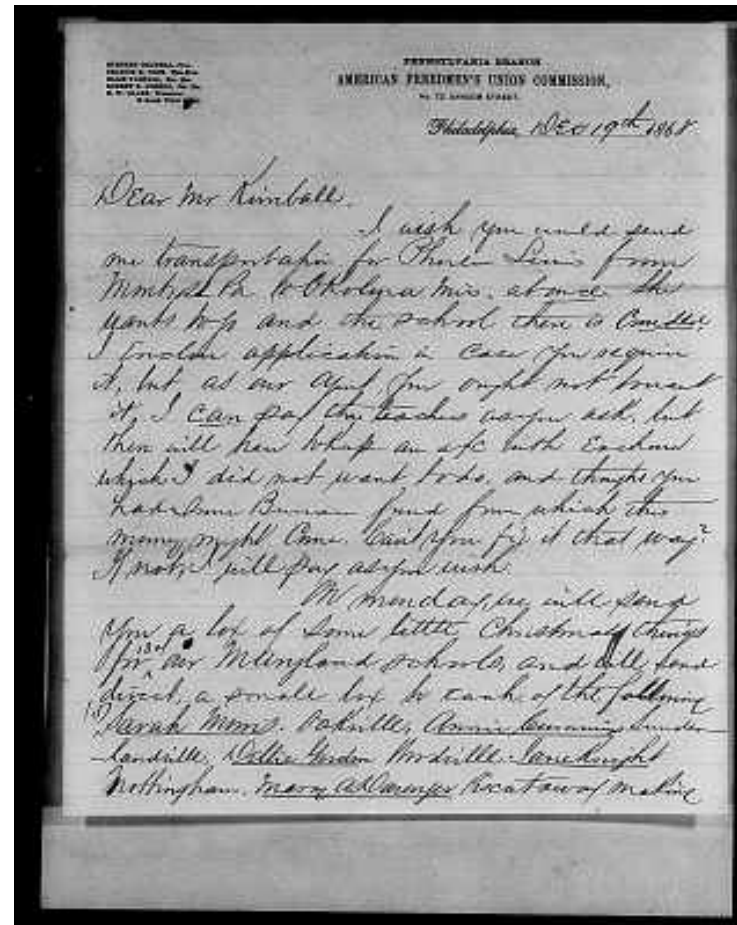 PENNSYLVANIA BRANCH
AMERICAN FREEDMEN'S UNION COMMISSION,
Philadelphia, Dec 19th 1868
Dear Mr Kimball.
I wish you would send
me transportation for Lewis from
Montrose Pa to Okolona Miss. at once. She
wants to go and the school there is
I Enclose application in case you require
it, but, as our agent, you ought not to want
it. I can pay the teachers as you ask, but
then will have to keep an a/c with Enclosed
which I did not want to do, and thought you
had some Bureau fund from which this
money might Come. Can't you fix it that way?
If not, I will pay as you wish.
On Monday, we will send
you a box of some little Christmas things
for our Maryland schools, and will send
direct, a small box to each of the following
Sarah Morris. Oakville, Annie Sunder-
landville, Gordon Woodville. Jane Knight
Nottingham. Mary Piscataway making